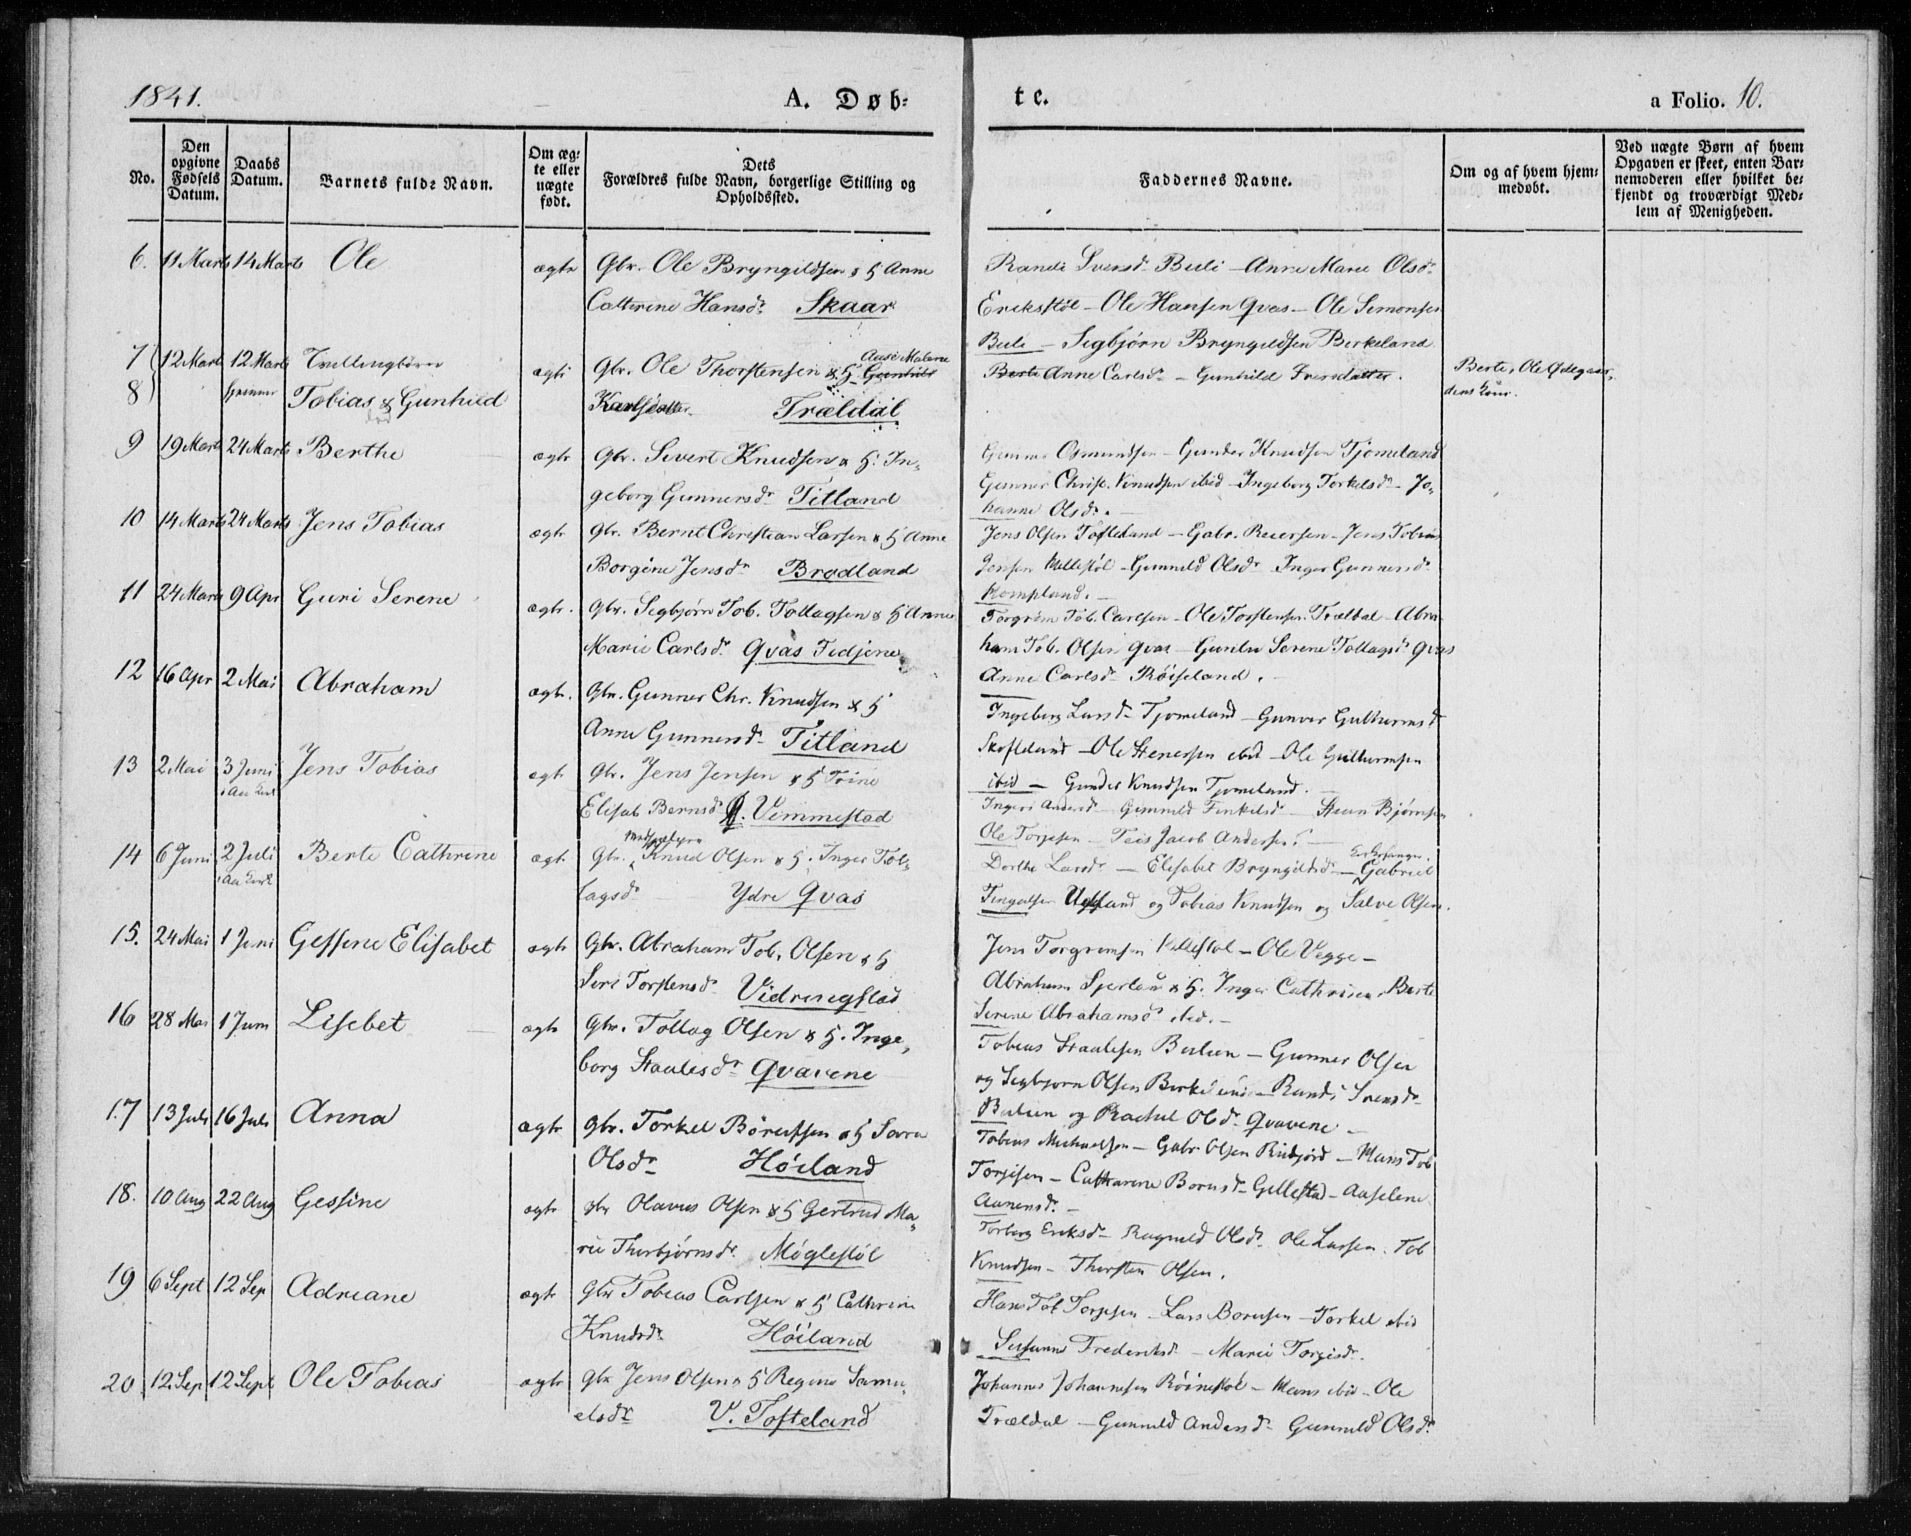 1841.
A. Døb-
te.
a Folio. 10.
No.
Den opgivne Fødsels Datum.
Daabs Datum.
Barnets fulde Navn.
Om ægte eller uægte født.
Dets
Forældres fulde Navn, borgerlige Stilling og
Opholdssted.
Faddernes Navne.
Om og af hvem hjem-
medøbt.
Ved uægte Børn af hvem
Opgaven er skeet, enten Bar-
nemoderen eller hvilket be-
kjendt og troværdigt Med-
lem af Menigheden.
6. 11 Marts 14 Marts Ole ægte Gbr. Ole Bryngildsen & H Anne
Cathrine Hansdr. Skaar
Randi Svensdr. Beili - Anne Marie Olsdr.
Eriksstøl - Ole Hansen Qvas - Ole Simonsen
Beili - Segbjørn Bryngildsen Birkeland
7 12 Marts 12 Marts Tvillingbørn ægte Gbr. Ole Thorstensen & H Gunhild
Aase Malene
8 hjemme Tobias & Gunhild Karlsdatter Trældal
Berte Anne Carlsdr. - Gunhild Svensdatter.
Berte, Ole Ødegaar-
dens Kone.
9 19 Marts 24 Marts Berthe ægte Gbr. Sivert Knudsen & H. In-
geborg Gunnersdr. Titland
Gunner Osmundsen - Gunder Knudsen Tjomeland
Gunner Christ. Knudsen ibid - Ingeborg Torkelsdr. - Jo-
hanne Olsdr. -
10 14 Marts 24 Marts Jens Tobias ægte Gbr. Bernt Christian Larsen & H Anne
Borgine Jensdr. Brodland
Jens Olsen Tofteland - Gabr. Reiersen - Jens Tobias
Jensen - Gunnild Olsdr. Inger Gunnersdr.
Kompland. -
11 24 Marts 9 Apr Guri Serene ægte. Gbr. Segbjørn Tob. Tollagsen & H Anne
Marie Carlsdr. Qvas Tedjene
Torgrim Tob. Carlsen - Ole Torstensen Trældal - Abra-
ham Tob. Olsen Qvas - Serene Tollagsdr. Qvas
Anne Carlsdr. Røiseland.
12 16 Apr 2 Mai Abraham ægte. Gbr. Gunner Chr. Knudsen & H
Anne Gunnersdr. Titland
Ingeborg Larsdr. Tjomeland - Gunvor Guthormsd
Skofteland - Ole Stenersen ibid - Ole Guthormsen
ibid - Gunder Knudsen Tjomeland.
13 2 Mai 3 Juni Jens Tobias ægte Gbr. Jens Jensen & H Trine
i Aa Kirk
Elisab Berntsdr. Vemmestad
Ingeri Andersd - Gunnild Tinkelsdr - Steen Bjørnsen
Ole Torjesen - Teis Jacob Andersen. -
14 6 Juni 2 Juli Berte Cathrine ægte Gbr. Knud Olsen & H. Inger Tol-
Medhjelper
i Aa Kirk
lagsdr. Ydre Qvas
Dorthe Larsdr - Elisabet Bryngildsdr. - Gabriel
Kirkesanger
Tingalsen Ueland og Tobias Knudsen og Salve Olsen.
15. 24 Mai 1 Juni Gessine Elisabet ægte Gbr. Abraham Tob. Olsen & H
Siri Torstensdr. Vidringstad
Jens Torgrimsen - Ole Vegge -
Abraham & H. Inger Cathrine, Berte
Serene Abrahamsdr ibid. -
16 28 Mai 1 Juni Lisebet ægte Gbr. Tollag Olsen & H. Inge-
borg Staalesdr. Qvavene
Tobias Staalesen Beilien - Gunner Olsen
og Segbjørn Olsen Birkeland - Randi Svensdr.
Beilien og Rachel Olsdr. Qvavene -
17 13 Juli 16 Juli Anna ægte Gbr. Torkel Børufsen & H Sara
Olsdr. Høiland
Tobias Michaelsen - Gabr Olsen Risfjord - Hans Tob
Torjisen - Catharine Børusd. Gillestad - Aaselene
Aanensdr. -
18. 10 Aug 22 Aug Gessine ægte Gbr Olavus Olsen & H Gertrud Ma-
rie Thorbjørnsdr. Møglestøl
Torborg Eriksdr - Ragnild Olsdr. Ole Larsen. Tob
Knudsen - Thorsten Olsen.
19 6 Sept 12 Sep Adriane ægte Gbr Tobias Carlsen & H Cathrine
Knudsdr. Høiland
Hans Tob Torjesen - Lars Borusen - Torkel ibid
Susanne Frederiksdr - Marie Torgisdr.
20 12 Sep 12 Sept Ole Tobias ægte Gbr Jens Olsen & H Regine Samu-
elsdr. V. Tofteland
Johannes Johannesen Røinestøl - Hans ibid - Ole
Trældal - Gunnild Andersdr Gunnild Olsdr.